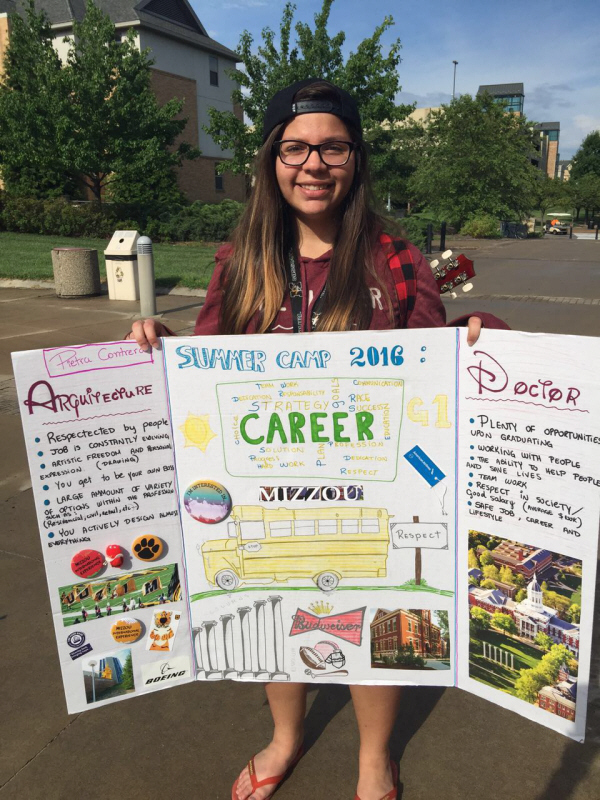 Pietra Contrera
ARQUITECTURE
Respectected by people
JOB IS CONSTANTLY EVOLVING
ARTISTIC FREEDOM AND PERSONAL
EXPRESSION. (DRAWING)
YOU GET TO BE YOUR OWN BOSS
LARGE AMMOUNT OF VARIETY
OF OPTIONS WITHIN THE PROFESSION
SUCH AS:
(Residencial, civil, retail, etc.)
YOU ACTIVELY DESIGN ALMOST
EVERYTHING
BOEING
SUMMER CAMP 2016 :
TEAM WORK
COMMUNICATION
GOALS
STRATEGY
RACE
SUCCESS
CHOICE
CAREER
EDUCATION
G1
SOLUTION
PLAN
PROFESSION
HARD WORK
RESPECT
MIZZOU
Respect
Budweiser
DOCTOR
PLENTY OF OPPORTUNITIES
UPON GRADUATING
WORKING WITH PEOPLE
THE ABILITY TO HELP PEOPLE
AND SAVE LIVES
TEAM WORK
RESPECT IN SOCIETY/
Good Salary
SAFE JOB, CAREER AND
LIFESTYLE